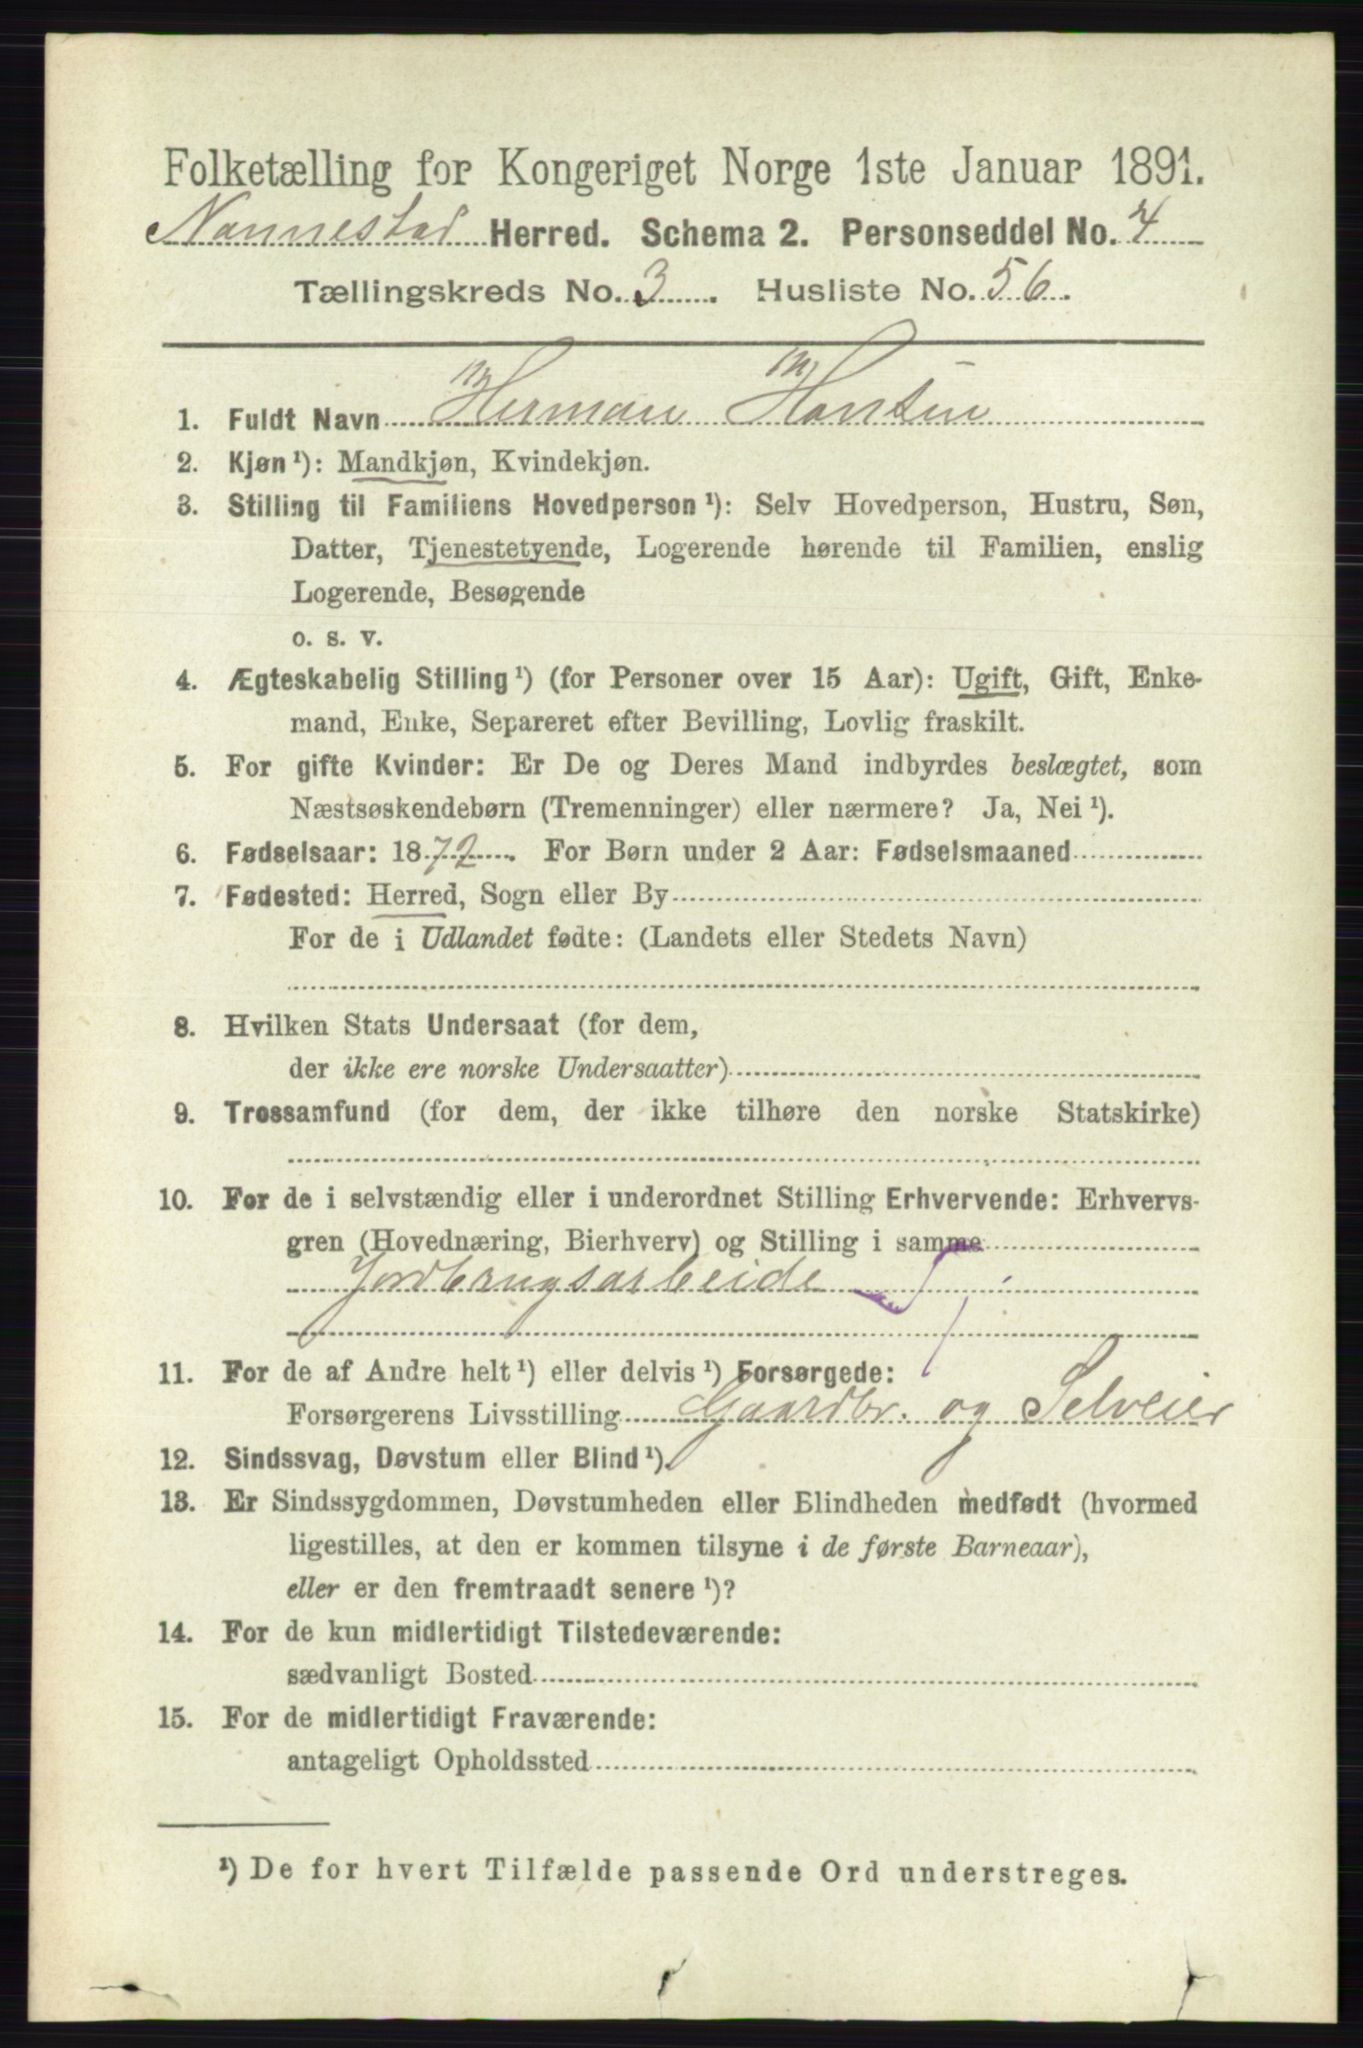 Folketælling for Kongeriget Norge 1ste Januar 1891.
Nannestad Herred. Schema 2. Personseddel No. 4
Tællingskreds No. 3. Husliste No. 56.
1. Fuldt Navn Herman Hansen
2. Kjøn ¹): Mandkjøn, Kvindekjøn.
3. Stilling til Familiens Hovedperson ¹): Selv Hovedperson, Hustru, Søn,
Datter, Tjenestetyende, Logerende hørende til Familien, enslig
Logerende, Besøgende
o. s. v.
4. Ægteskabelig Stilling ¹) (for Personer over 15 Aar): Ugift, Gift, Enke-
mand, Enke, Separeret efter Bevilling, Lovlig fraskilt.
5. For gifte Kvinder: Er De og Deres Mand indbyrdes beslægtet, som
Næstsøskendebørn (Tremenninger) eller nærmere? Ja, Nei ¹).
6. Fødselsaar: 1872. For Børn under 2 Aar: Fødselsmaaned
7. Fødested: Herred, Sogn eller By
For de i Udlandet fødte: (Landets eller Stedets Navn)
8. Hvilken Stats Undersaat (for dem,
der ikke ere norske Undersaatter)
9. Trossamfund (for dem, der ikke tilhøre den norske Statskirke)
10. For de i selvstændig eller i underordnet Stilling Erhvervende: Erhvervs-
gren (Hovednæring, Bierhverv) og Stilling i samme
Jordbrugsarbeide
11. For de af Andre helt ¹) eller delvis ¹) Forsørgede:
Forsørgerens Livsstilling Gaardbr. og Selveier
12. Sindssvag, Døvstum eller Blind ¹).
13. Er Sindssygdommen, Døvstumheden eller Blindheden medfødt (hvormed
ligestilles, at den er kommen tilsyne i de første Barneaar),
eller er den fremtraadt senere ¹)?
14. For de kun midlertidigt Tilstedeværende:
sædvanligt Bosted
15. For de midlertidigt Fraværende:
antageligt Opholdssted
¹) De for hvert Tilfælde passende Ord understreges.